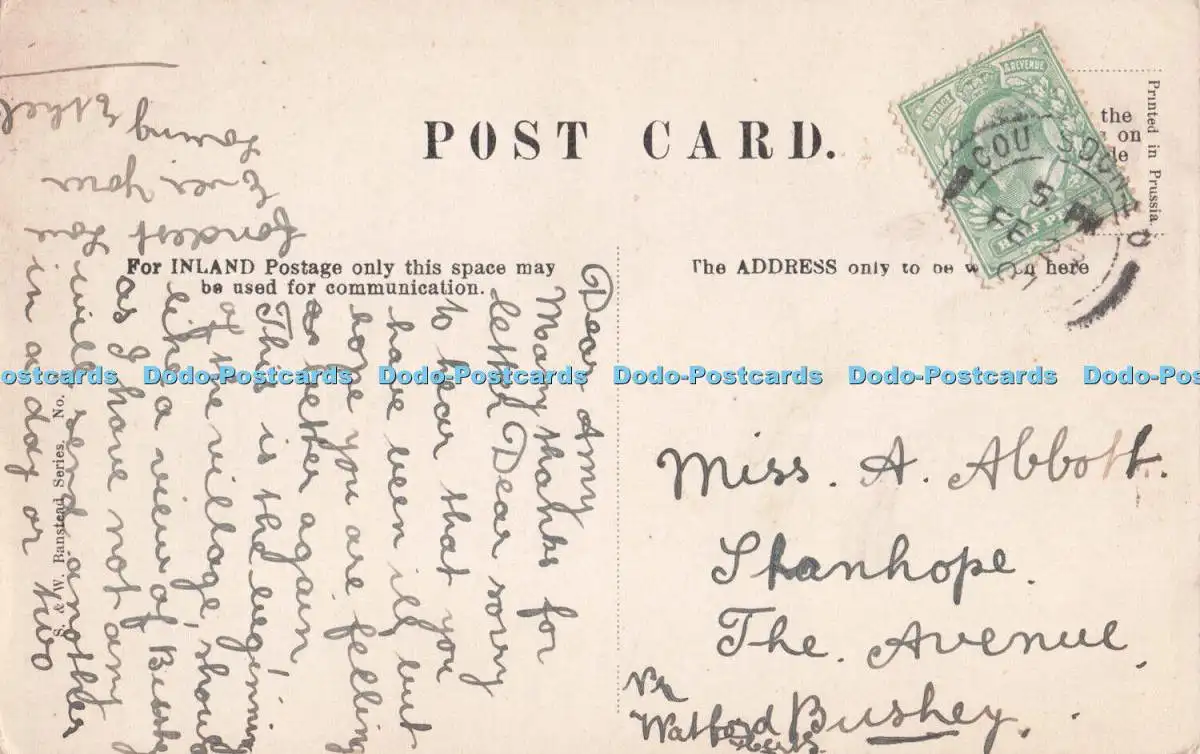 POST CARD.
For INLAND Postage only this space may
be used for communication.
The ADDRESS only to be here
the
on
de
Printed in Prussia.
POSTAGE & REVENUE
HALF PENNY
COULSDON
5 PM
FE
S. & W. Banstead Series. No.
Dear Amy
Many thanks for
letter Dear sorry
to hear that you
have been ill, but
hope you are felling
as better again,
This is the beginning
of the village, should
like a view of Bushey
as I have not any
will send another
in a day or two
fondest love
Ever your
loving Ethel
Miss. A. Abbott.
Stanhope.
The. Avenue,
Bushey,
Nr
Watford
Herts.
Dodo-Postcards Dodo-Postcards Dodo-Postcards Dodo-Postcards Dodo-Postcards Dodo-Postcards